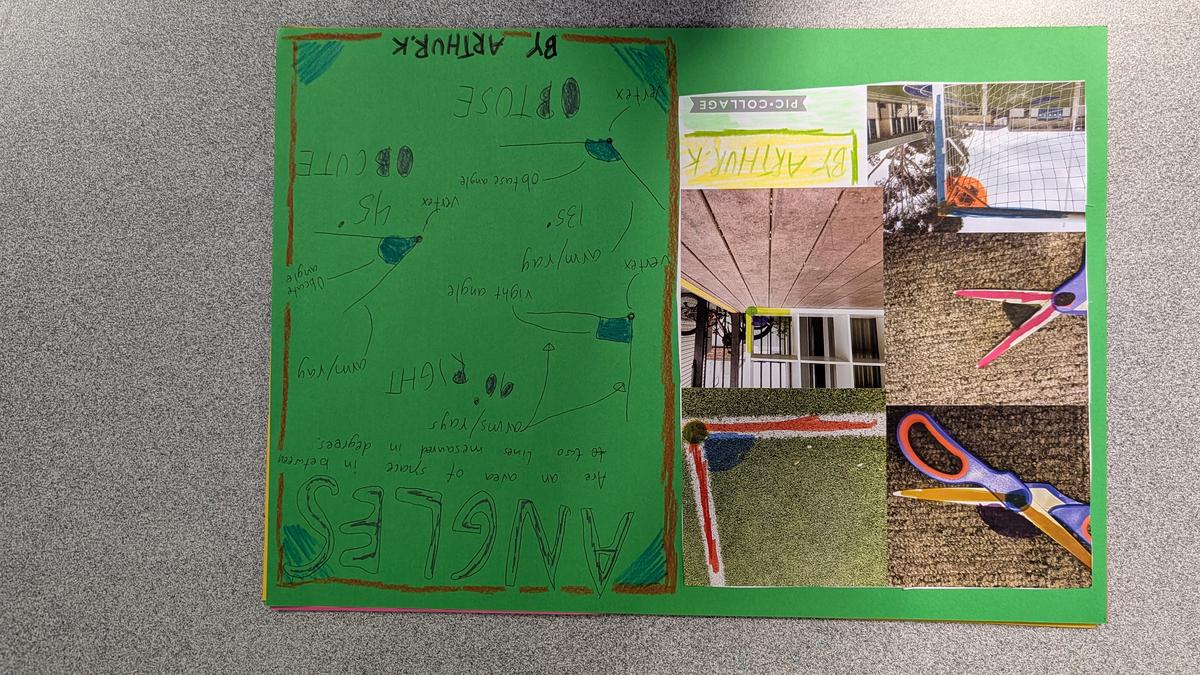 ANGLES
Are an area of space in between
to two lines mesaured in degrees.
arms/rays
90° RIGHT
arm/ray
right angle
vertex
Obcute
angle
arm/ray
135°
45°
vertex
Obtuse angle
OBCUTE
vertex
OBTUSE
BY ARTHUR.K
BY ARTHUR.K
PIC•COLLAGE